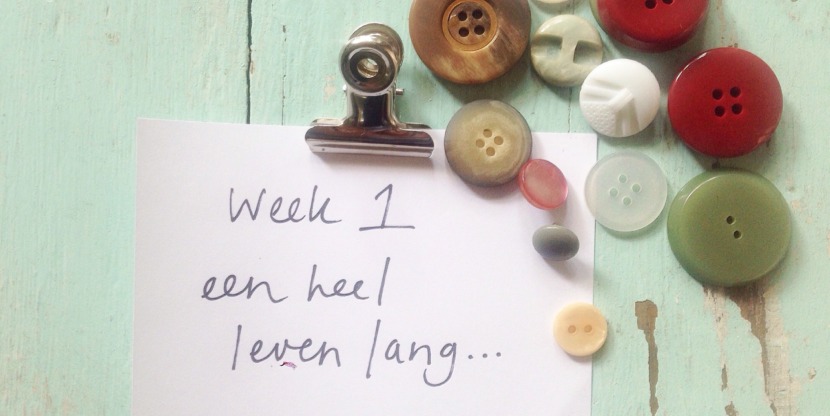 Week 1
een heel
leven lang...